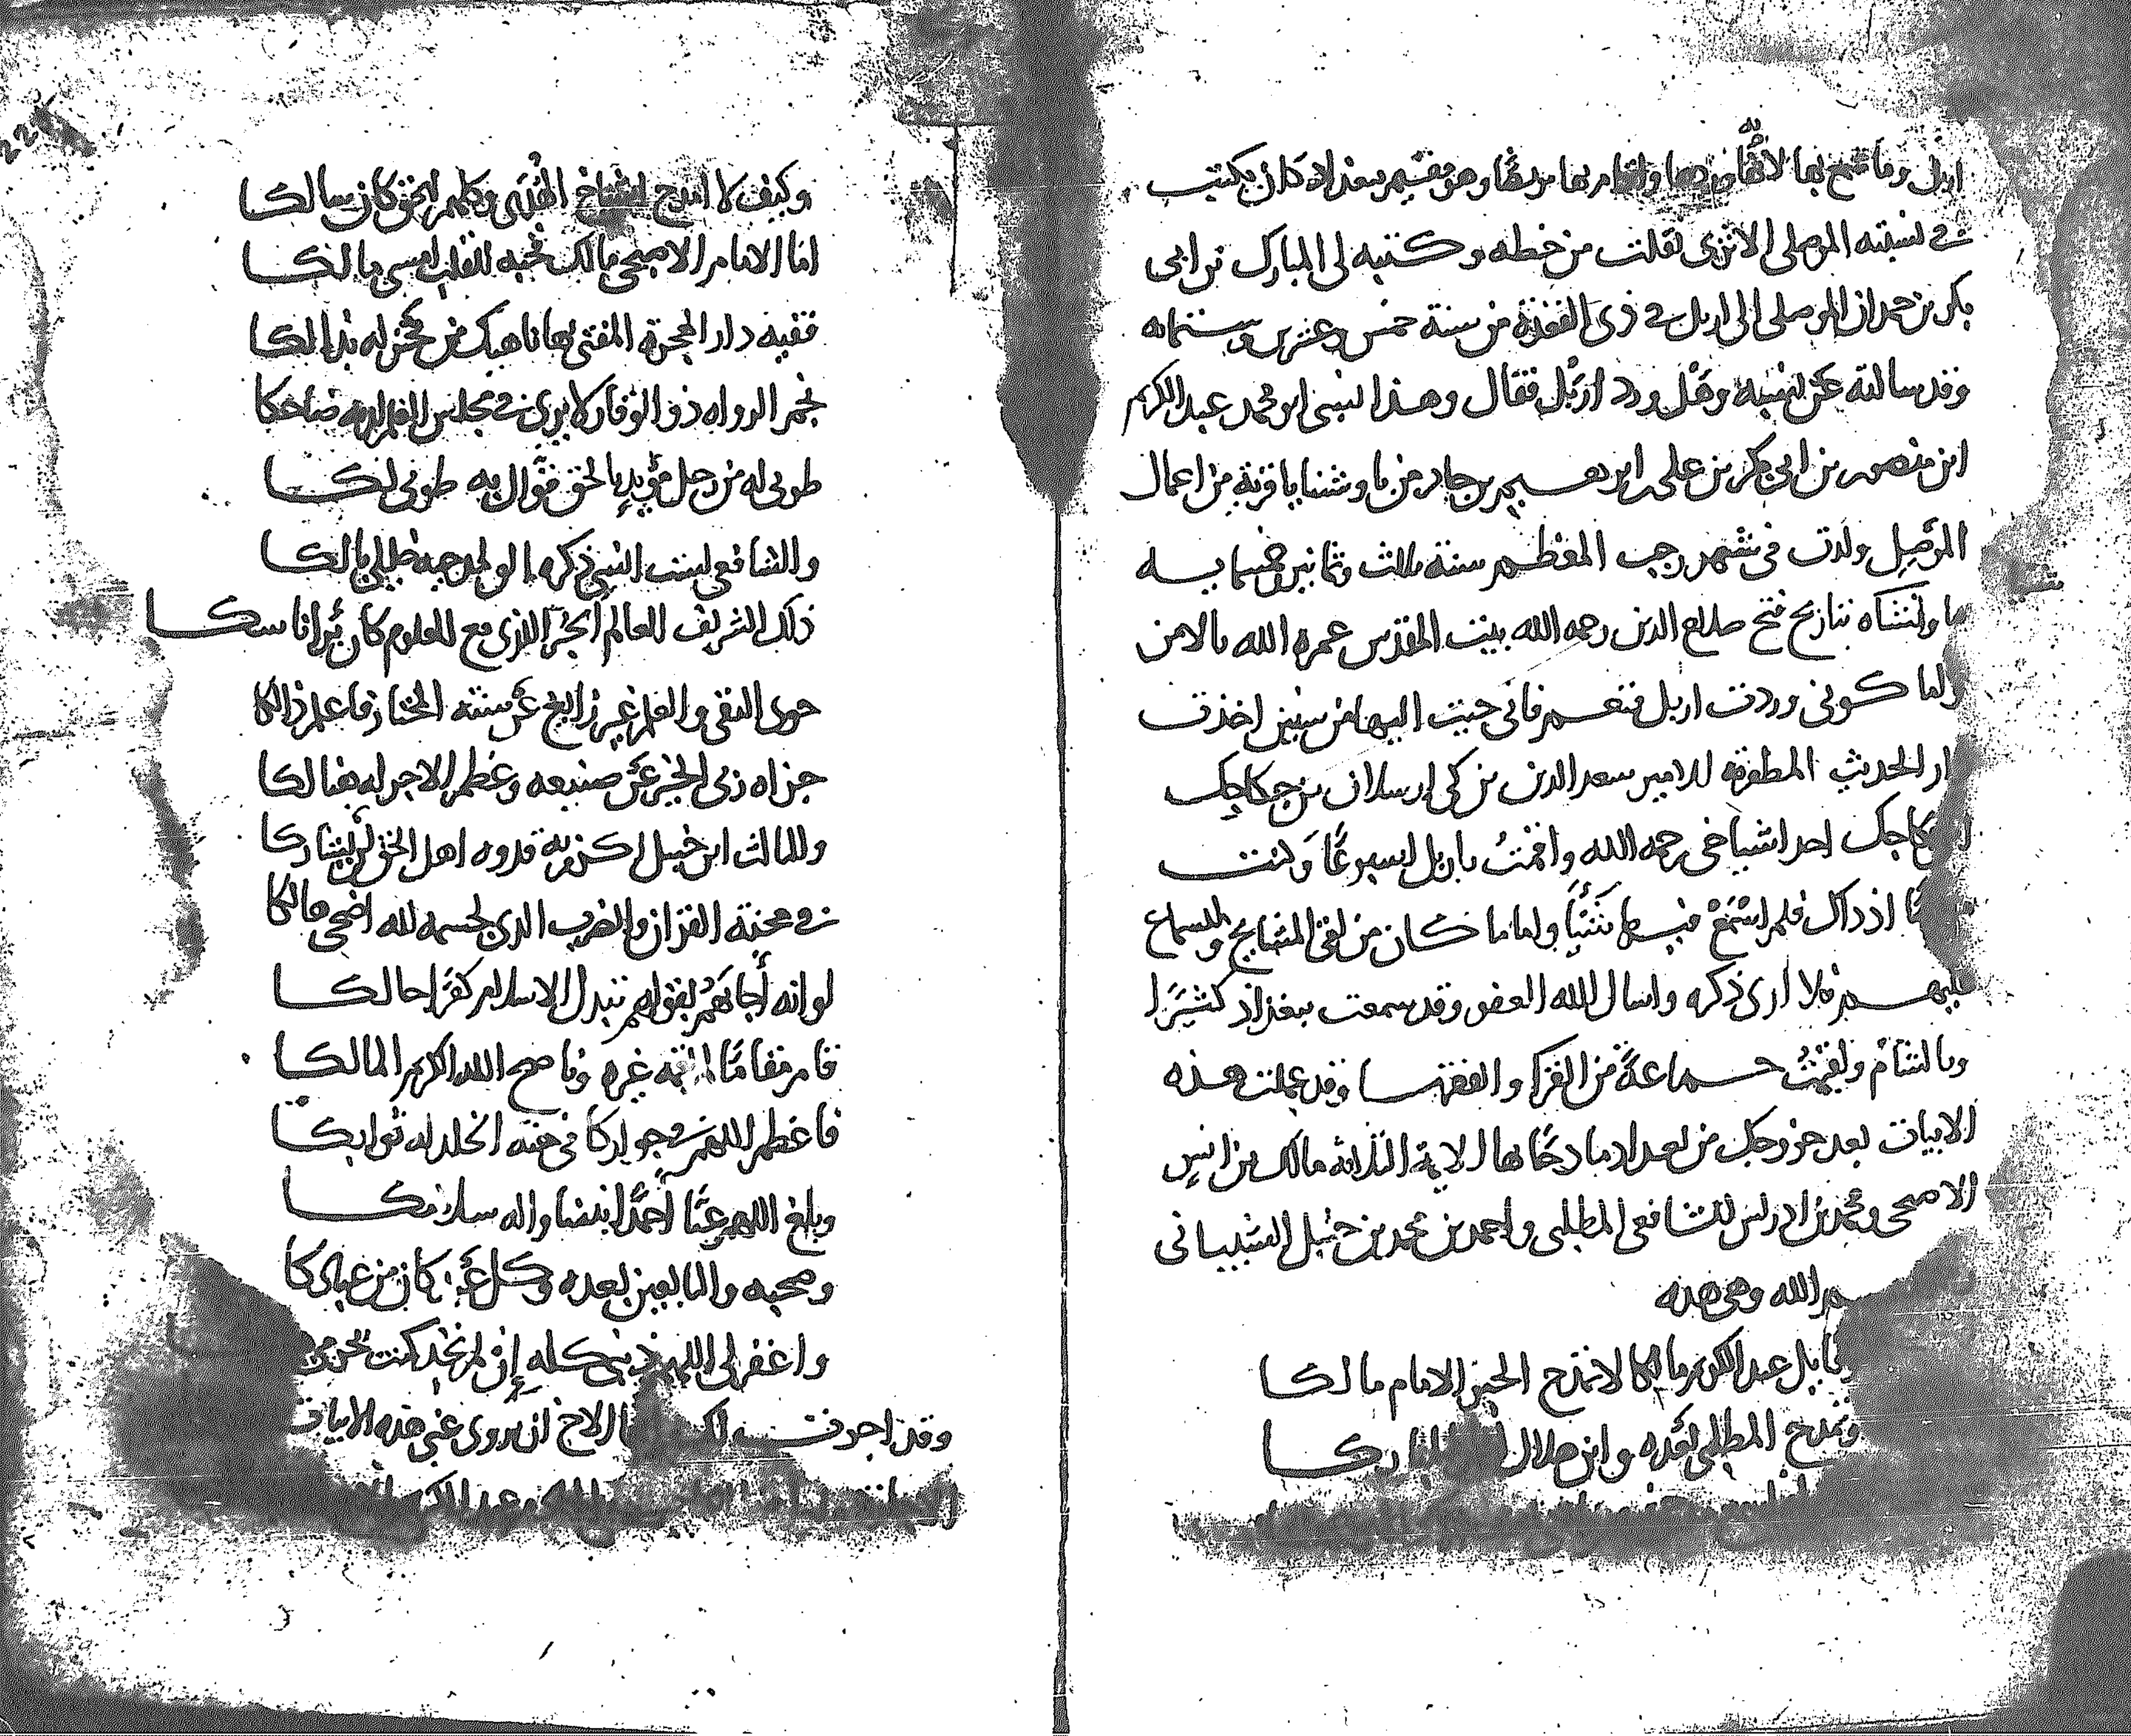 اربل وما سمع بها لانه وردها واقام بها مريضا وهو مقيم ببغداد كان يكتب
في نسبته الموصلي الاثري نقلت من خطه وكتبه لي المبارك بن ابي
بكر بن حمدان الموصلي الى اربل في ذي القعدة من سنة خمس وعشرين وستمائه
وقد سالته عن نسبه وهل ورد اربل فقال وهذا نسبي ابو محمد عبد الكريم
ابن منصور بن ابي بكر بن علي بن ابرهيم بن جابر من باوشنايا قرية من اعمال
الموصل ولدت في شهر رجب المعظم سنة ثلاث وثمانين وخمسمايه
ما ولتناه بتاريخ فتح صلاح الدين رحمه الله بيت المقدس عمره الله بالامن
واما كوني وردت اربل فنعم فاني جيت اليها من سنين اخذت
دار الحديث المظفرية للامير سعد الدين بن كي ارسلان بن جكاجك
جكاجك احد اشياخي رحمه الله واقمت باربل اسبوعا وكنت
اذ ذاك فلم اسمع فيها شيئا واما ما كان من لقي المشايخ والسماع
عليهم فلا ارى ذكره واسال الله العفو وقد سمعت ببغداد كثيرا
وبالشام ولقيت جماعة من القرا والفقها وقد عملت هذه
الابيات بعد خروجك من بغداد مادحا بها الاية الثلاثة مالك بن انس
الاصبحي ومحمد بن ادريس الشافعي المطلبي واحمد بن محمد بن حنبل الشيباني
الله وهي هذه
قايل عبد الكريم ما لكا لا تمدح الحبر الامام مالكا
وتمدح المطلبي بعده وابن هلال المباركا
وكيف لا امدح اشياخ الهدى وكلهم للحق كان سالكا
اما الامام الاصبحي مالك فحبه القلب امسى مالكا
فقيه دار الهجرة المفتي بها ناهيك من فخر له بذالكا
نجم الرواه ذو الوقار لا يرى في مجلس العلم لديه ضاحكا
طوبى له من رجل مؤيد بالحق قوال به طوبى لكا
والشافعي لست انسى ذكره
ذاك الشريف العالم الحبر الذي مع العلوم كان برا ناسكا
حوى التقى والعلم غير زايغ عن سنة المختار فاعلم ذالكا
جزاه ربي الخير عن صنيعه وعظم الاجر له هنالكا
والثالث ابن حنبل اكرم به قدوه اهل الحق
في محنة القران والضرب الذي لجسمه لله اضحى هالكا
لو انه اجابهم لقولهم تبدل الاسلام كفرا حالكا
قام مقاما لم يقمه غيره وناصح الله الكريم المالكا
فاعظم اللهم في جواركا في جنة الخلد له ثوابكا
وبلغ اللهم عنا احمدا نبينا واله سلامكا
وصحبه والتابعين بعده وكل عبد كان من عبادكا
واغفر لي اللهم ذنبي كله إن لم تجد كنت
وقد اجزت لك الاخ ان يروي عني هذه الابيات